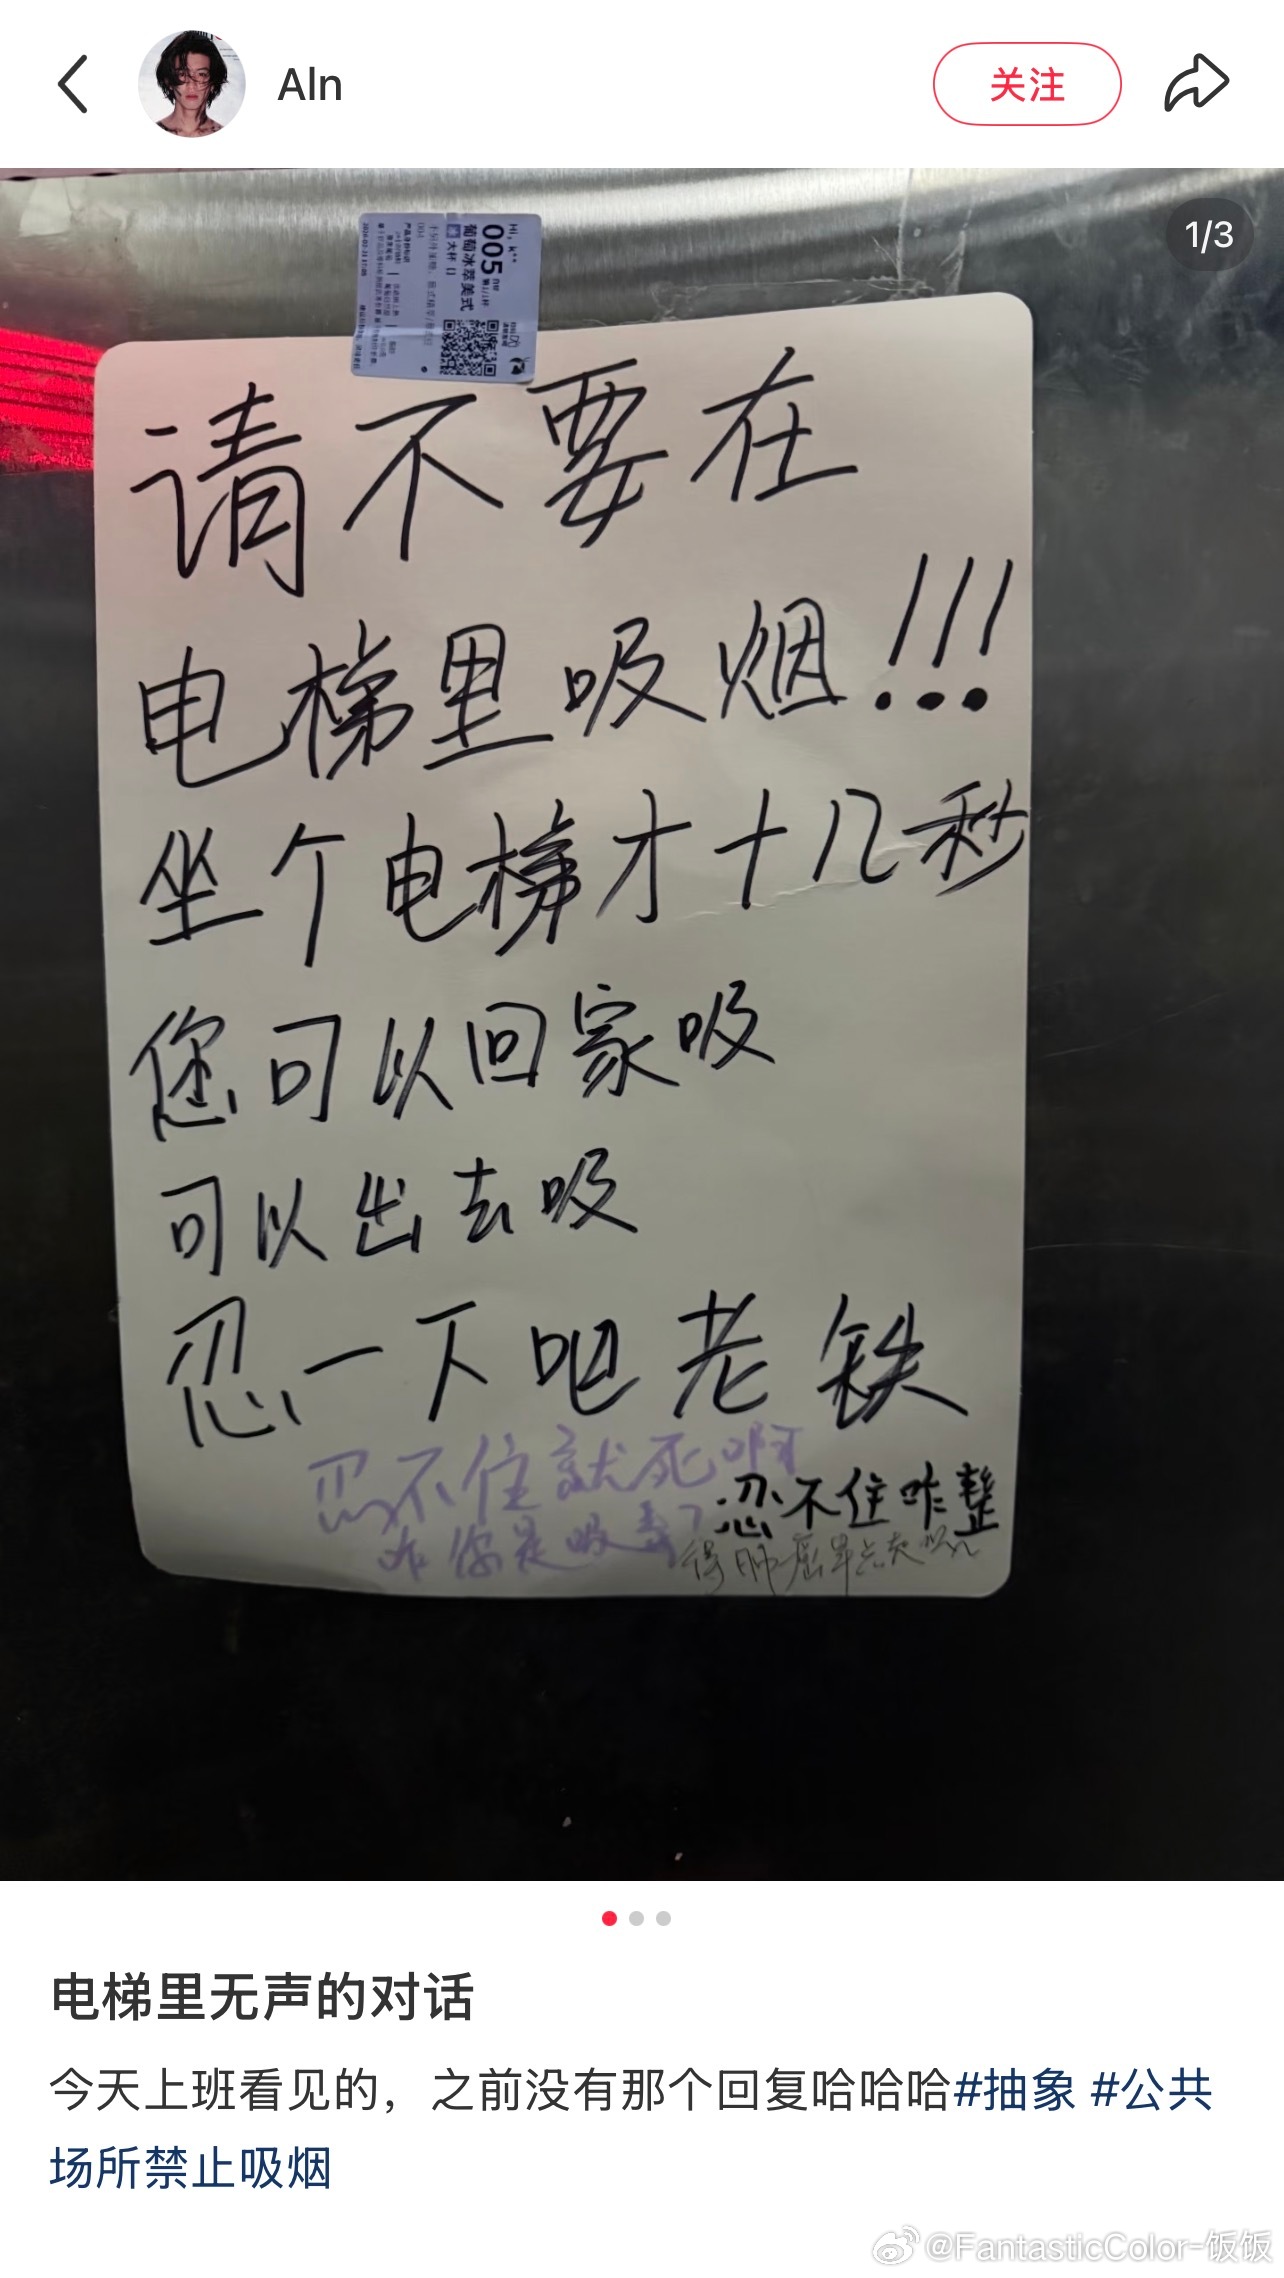 Aln
关注
1/3
Hi，k**
005
葡萄冰萃美式
大杯
请不要在
电梯里吸烟!!!
坐个电梯才十几秒
您可以回家吸
可以出去吸
忍一下吧老铁
忍不住咋整
忍不住就死啊
咋你是吸毒?
电梯里无声的对话
今天上班看见的，之前没有那个回复哈哈哈#抽象 #公共
场所禁止吸烟
@FantasticColor-饭饭